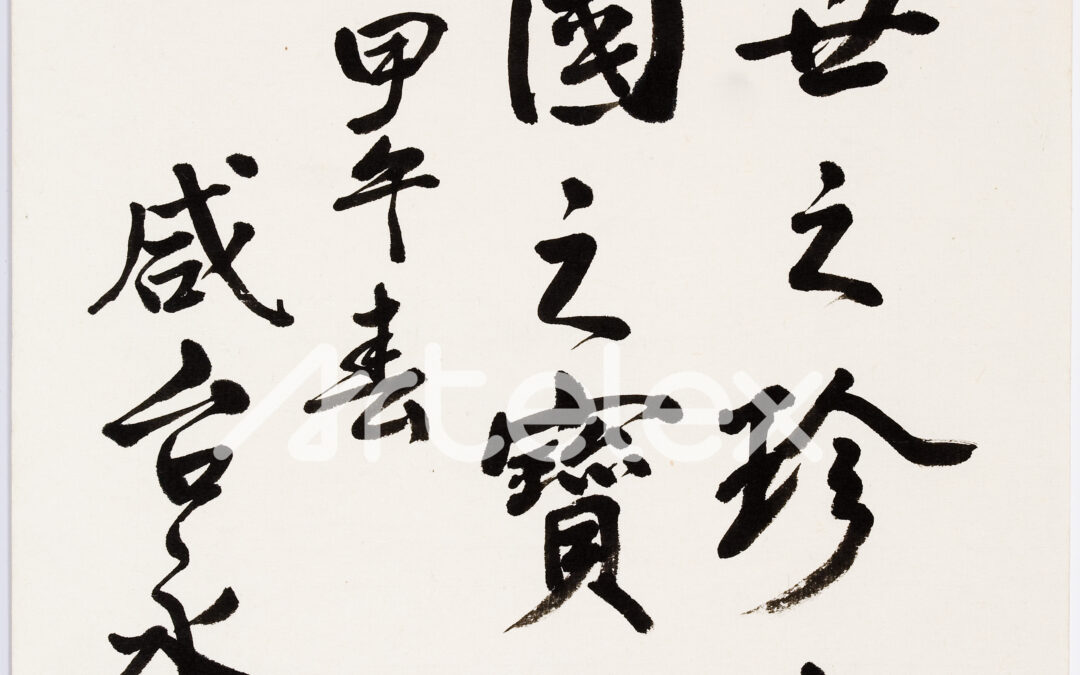 世之珍
國之寶
甲午春
咸台永
Artelex